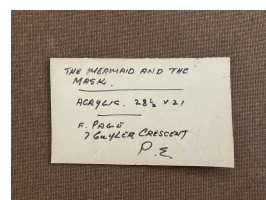 THE MERMAID AND THE
MASK.
ACRYLIC. 28½ x 21
F. PAGE
7 CUYLER CRESCENT
P.E